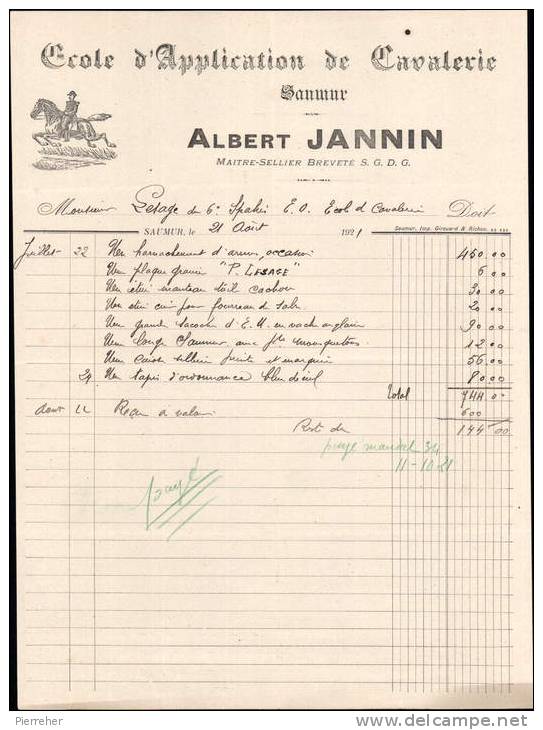 Ecole d'Application de Cavalerie
Saumur
ALBERT JANNIN
MAITRE-SELLIER BREVETÉ S. G. D. G.
Monsieur Lesage du 6e Spahis E. O. Ecol d Cavalerie Doit
SAUMUR, le 21 Août 1921 Saumur, Imp. Girouard & Richou.
Juillet 22 Un harnachement d'armes, occasion 450.00
Une plaque gravée "P. LESAGE" 6.00
Un étui manteau toil cachou 30.00
Un étui cuir pour fourreau d sabr 20.00
Un grande sacoche d'E. M en vache anglaise 90.00
Un longe Saumur, avec mousquetons 12.00
Un caisse sellerie peinte et marquée 56.00
29 Un tapis d'ordonnance bleu 80.00
Total 744 00
Aout 22 Reçu à valoir 600
Rest du 144 00
payé mandat 34
11-10-21
payé
Pierreher
delcampe.net